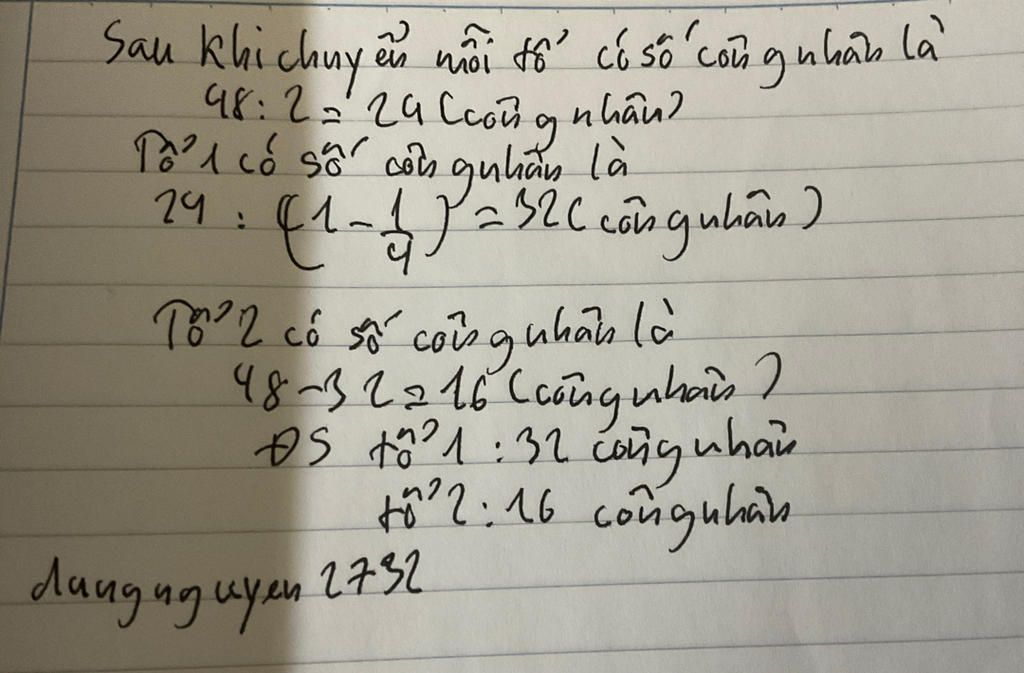 Sau khi chuyển mỗi tổ có số công nhân là
48 : 2 = 24 (công nhân)
Tổ 1 có số công nhân là
24 : (1 - 1/4) = 32 (công nhân)
Tổ 2 có số công nhân là
48 - 32 = 16 (công nhân)
ĐS tổ 1 : 32 công nhân
tổ 2 : 16 công nhân
dungnguyen2732